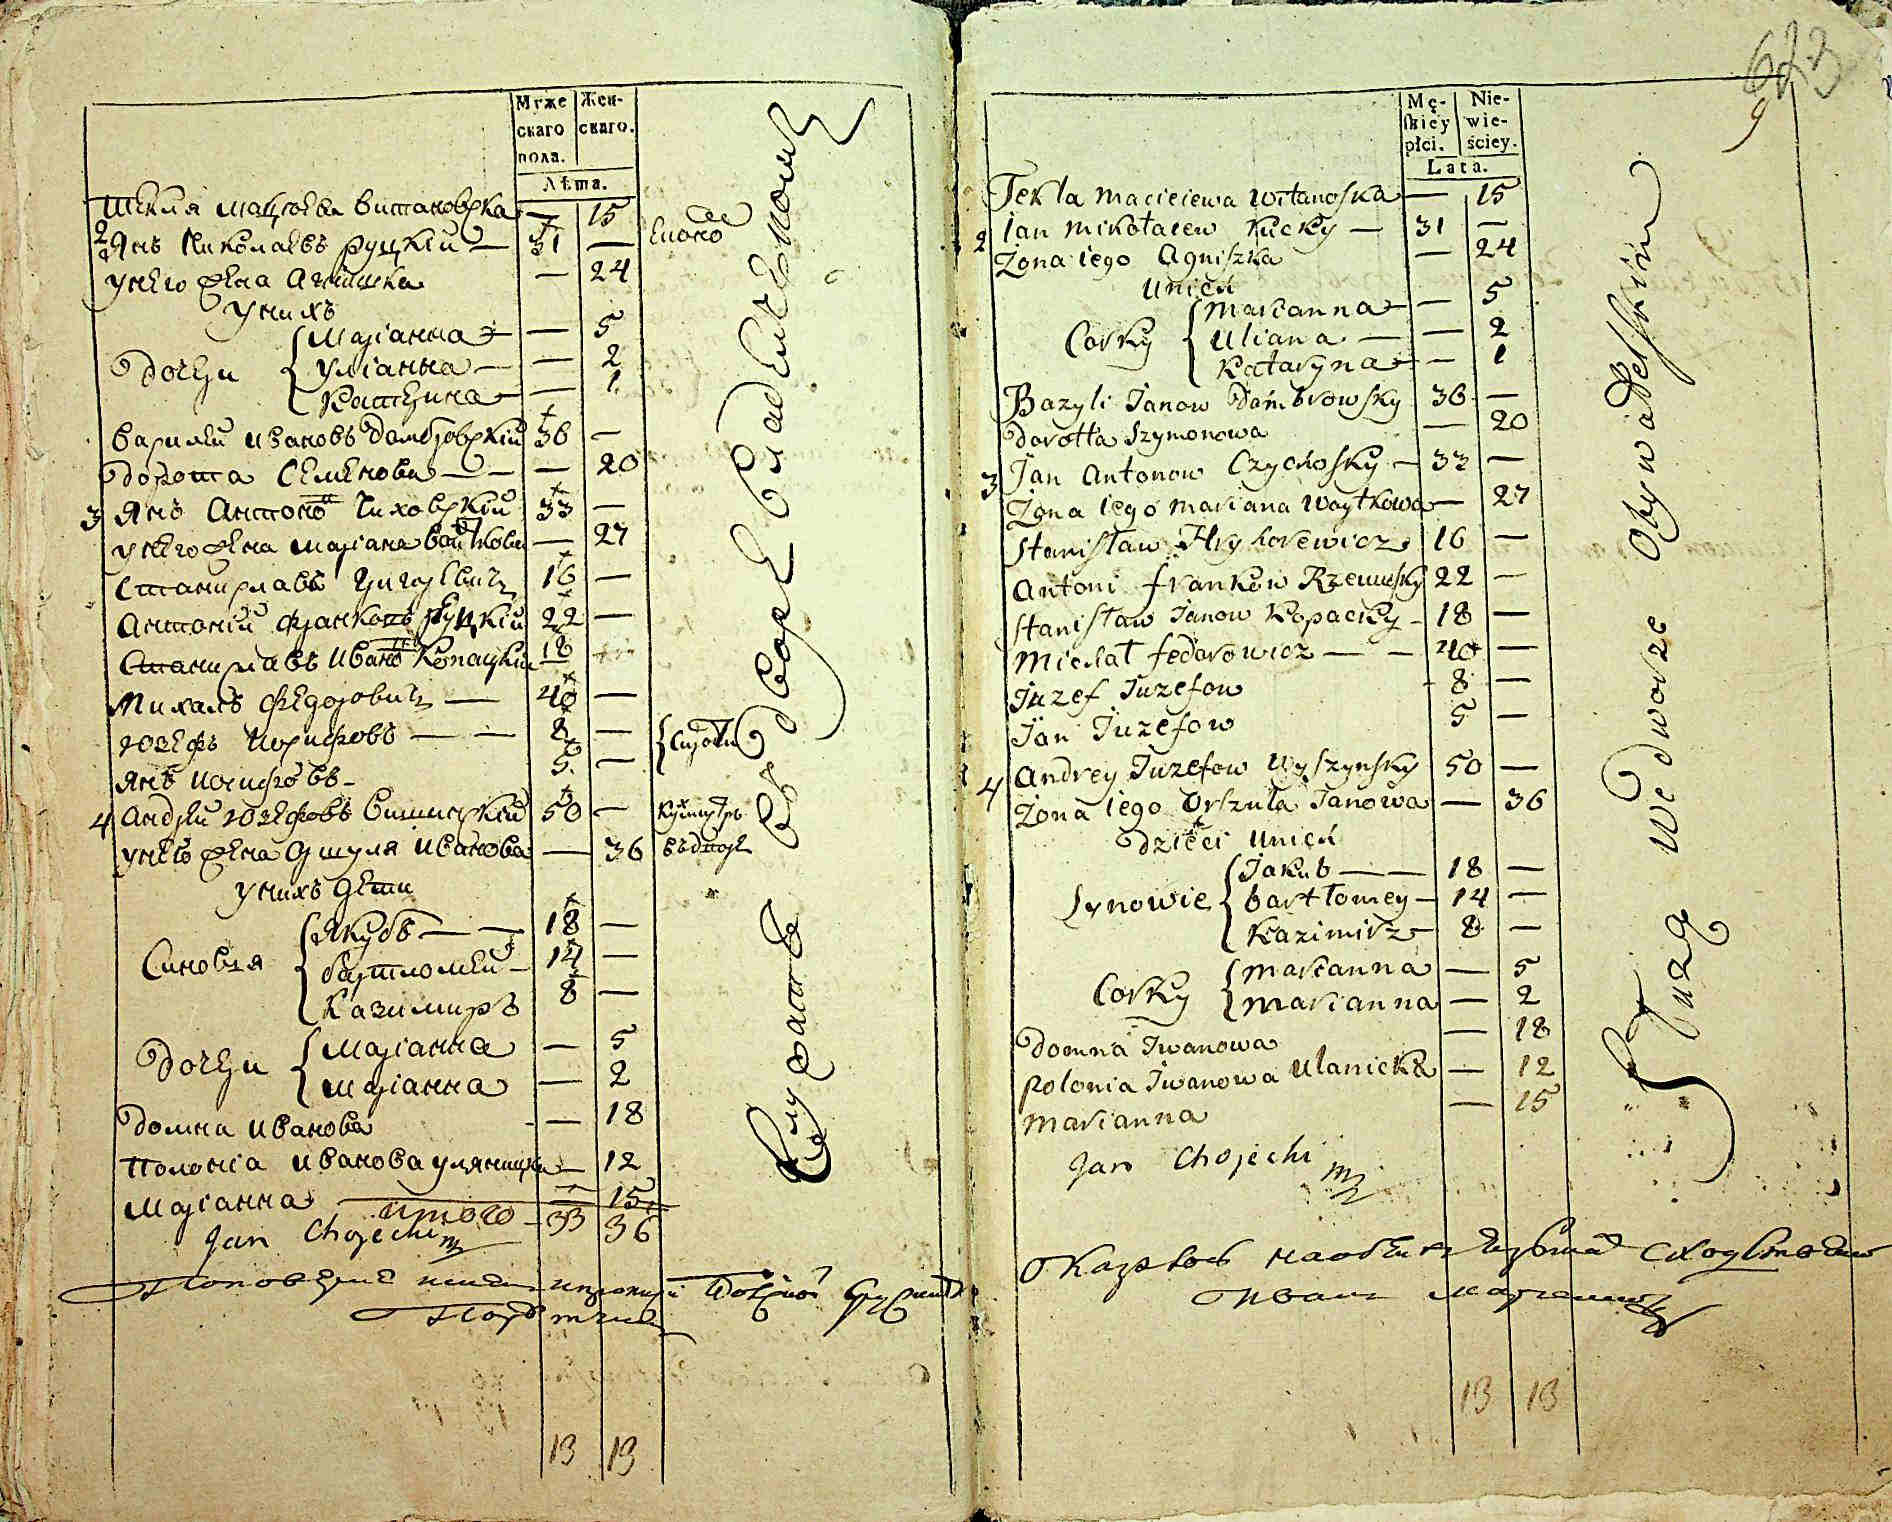 Мужескаго пола.
Женскаго.
Лѣта.
Текля Мацѣева Витановска — 15
2 Янъ Николаевъ Руцкій — 31 —
у него жена Агнишка — 24
у нихъ
Дочери
Маріанна — 5
Уліанна — 2
Катерина — 1
Василий Ивановъ Домбровскій 36 —
Дорота Семенова — 20
3 Янъ Антоно Чиховскій 33 —
у него жена Маріана Войткова — 27
Станиславъ Григоревичъ 16 —
Антоній Франковъ 22 —
Станиславъ Ивано Копацкій 18
Михалъ Федоровичъ — 40 —
Юзефъ Иосифовъ — 8 —
Янъ Иосифовъ — 5 —
4 Андрей Юзефовъ Вишинскій 50 —
у него жена Оршуля Иванова — 36
у нихъ дети
Синовья
Якубъ — 18 —
Бартломей — 14 —
Казимиръ 8 —
Дочери
Маріанна — 5
Маріанна — 2
Домна Иванова — 18
Полонія Иванова Уляницка — 12
Маріанна — 15
итого — 33 36
Jan Chojecki
13 13
Служатъ въ дворе владелческомъ
623
9
Mę-
skiey
płci.
Nie-
wie-
ściey.
Lata.
Tekla Macieiewa Witanoska — 15
2 Jan Mikołaiew Rucky — 31 —
Żona iego Agniszka — 24
Unich
Corky
Marianna — 5
Uliana — 2
Kataryna — 1
Bazyli Janow Dąmbrowsky 36 —
Dorotta Szymonowa — 20
3 Jan Antonow Czychosky — 33 —
Żona iego Mariana Woytkowa — 27
Stanisław Hryhorewicz 16 —
Antoni Frankow 22 —
Stanisław Janow Kopacky — 18 —
Michał Fedorowicz — 40 —
Juzef Juzefow 8 —
Jan Juzefow 5 —
4 Andrey Juzefow Wyszynsky 50 —
Żona iego Urszula Janowa — 36
Dzieci Unich
Synowie
Jakub — 18 —
Bartłomey — 14 —
Kazimirz — 8 —
Corky
Marianna — 5
Marianna — 2
Domna Iwanowa — 18
Polonia Iwanowa Ulanicka — 12
Marianna — 15
Jan Chojecki
13 13
Służą We Dworze Obywatelskim